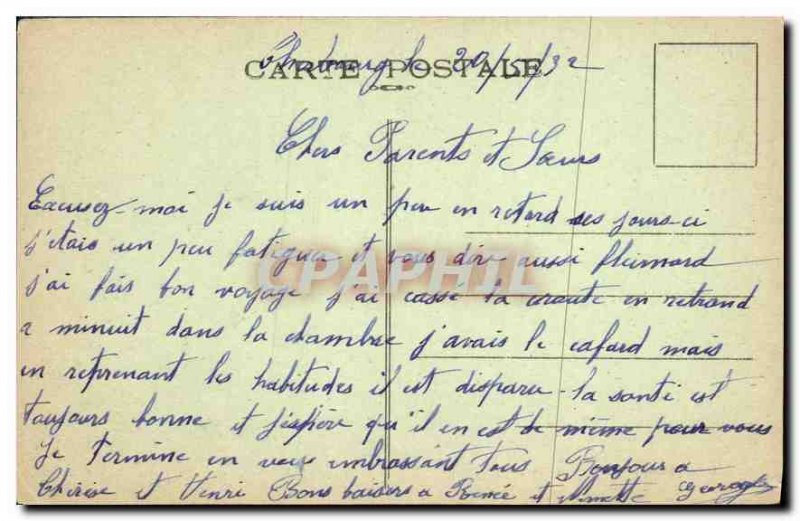 Cherbourg le 20/5/32
CARTE POSTALE
Chers Parents et Sœurs
Excusez-moi je suis un peu en retard ses jours-ci
j'etais un peu fatiguer et vous dire aussi fleimard
j'ai fais bon voyage j'ai cassé la croute en retrond
a minuit dans la chambre j'avais le cafard mais
en reprenant les habitudes il est disparu la santé est
toujours bonne et j'espère qu'il en est de même pour vous
Je termine en vous embrassant tous Bonjour a
Thérèse et Henri Bons baisers a Renée et Ginette Georges
CPAPHIL